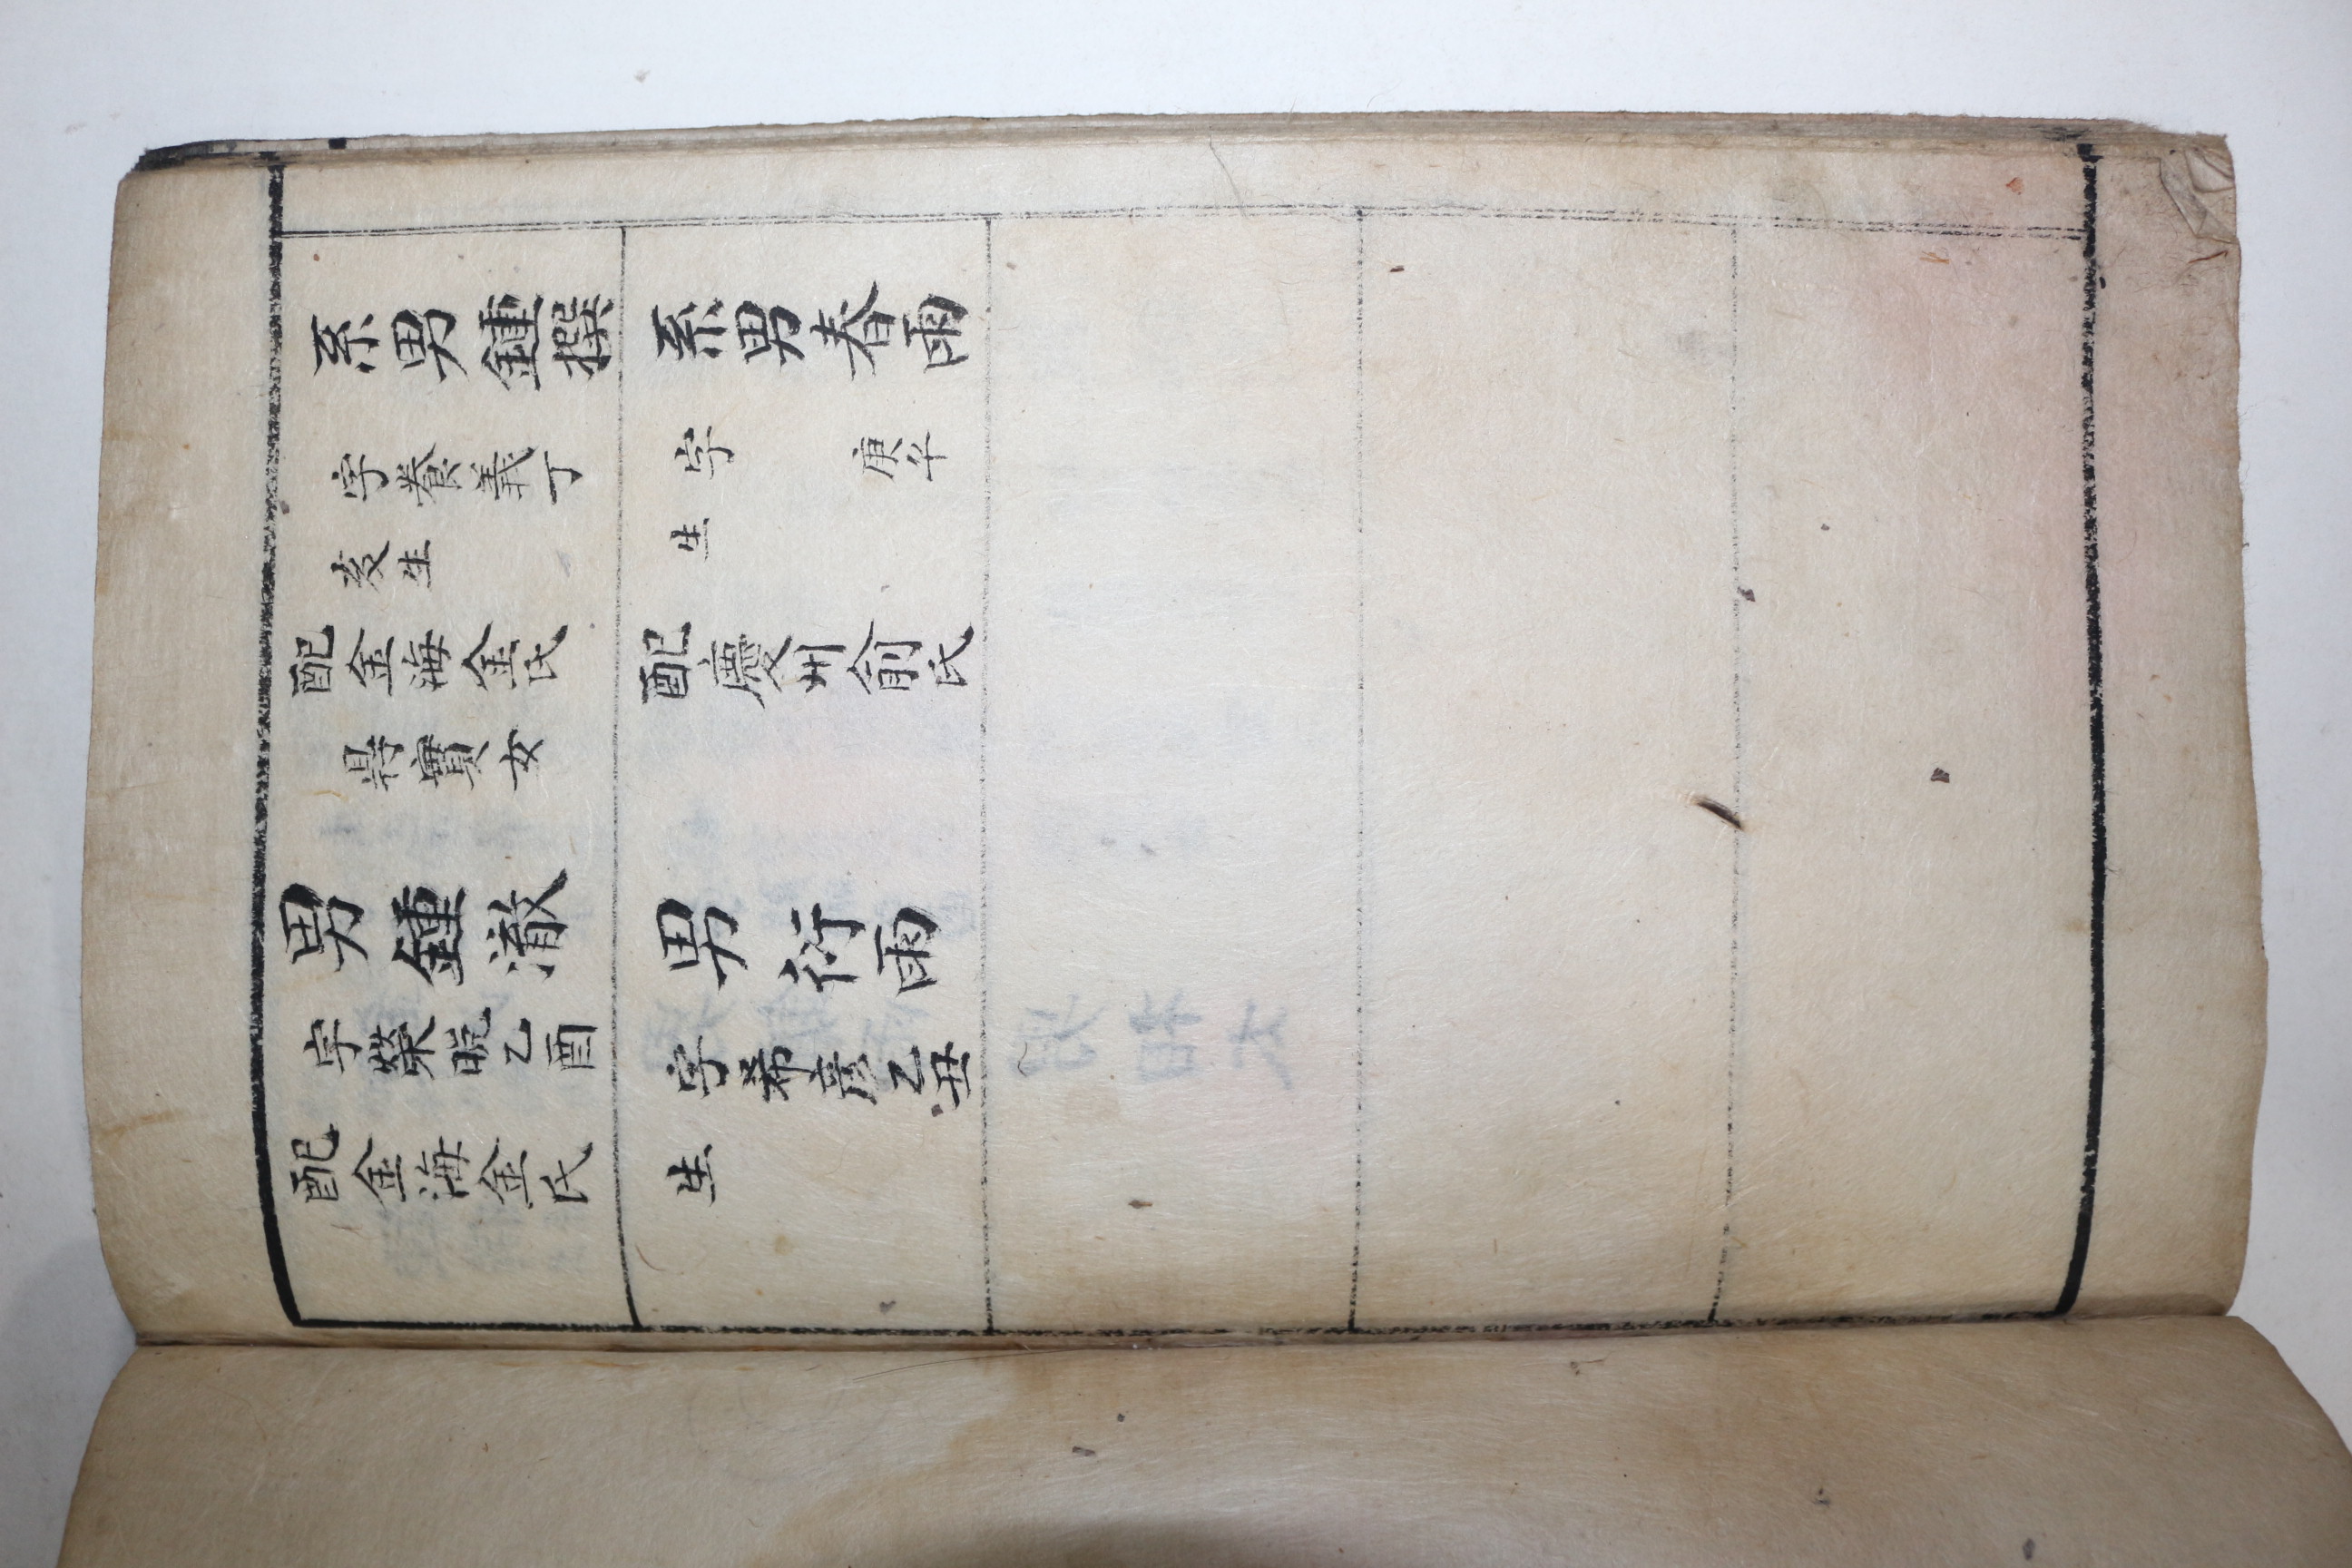 系男鍾撰
字養義丁
亥生
配金海金氏
得實女
男鍾澈
字榮 乙酉
配金海金氏
系男春雨
字 庚午
生
配慶州俞氏
男衍雨
字希彦乙丑
生